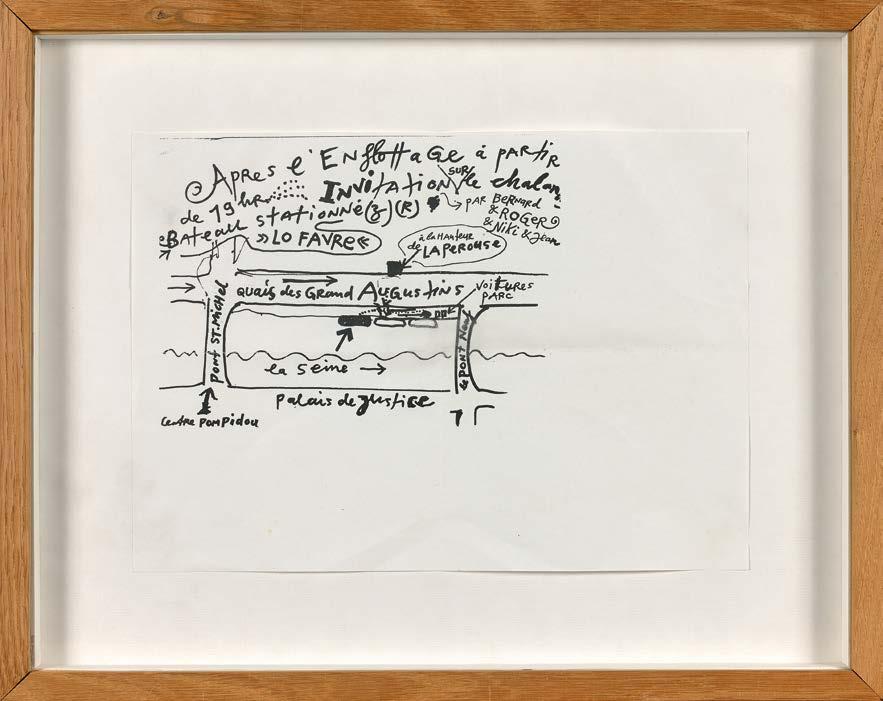 Après l'Enflottage à partir
de 19 hr. Invitation sur le chalan
Bateau stationné(z)(R) → par Bernard
& Roger
& Niki & Jean
»LO FAVRE«
à la Hauteur
de LAPEROUSE
QUAIS des GRAND AUGUSTINS
VOITURES
PARC
PONT ST. MICHEL
le PONT Neuf
la Seine →
Palais de Justice
CENTRE POMPIDOU